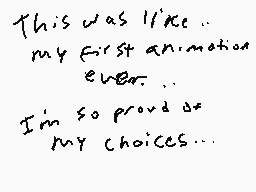 This was like..
my first animation
ever...
I'm so proud of
my choices...